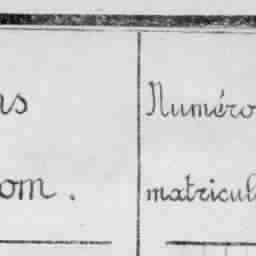 ns
om.
Numéro
matricul